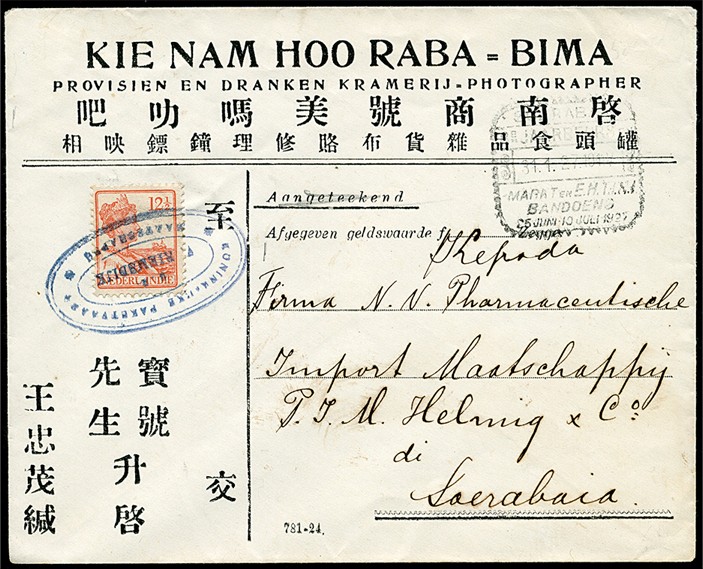 KIE NAM HOO RABA = BIMA
PROVISIEN EN DRANKEN KRAMERIJ = PHOTOGRAPHER
吧叻嗎美號商南啓
相映鏢鐘理修賂布貨雜品食頭罐
31.1.27
MARKT EN E.H.T.
BANDOENG
25 JUNI-10 JULI 1927
12½
NEDERL INDIE
KONINKLIJKE PAKETVAART
MAATSCHAPPIJ
Aangeteekend
Afgegeven geldswaarde f Zegge
Kepada
Firma N. V. Pharmaceutische
Import Maatschappij
P. I. M. Helmig & Co.
di
Soerabaia.
至
交
寶號
先生
升啓
王忠茂緘
781-24.